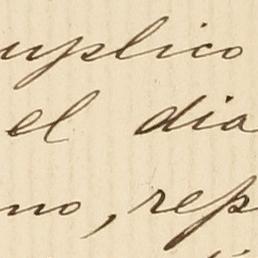 uplico
el dia
no, rep